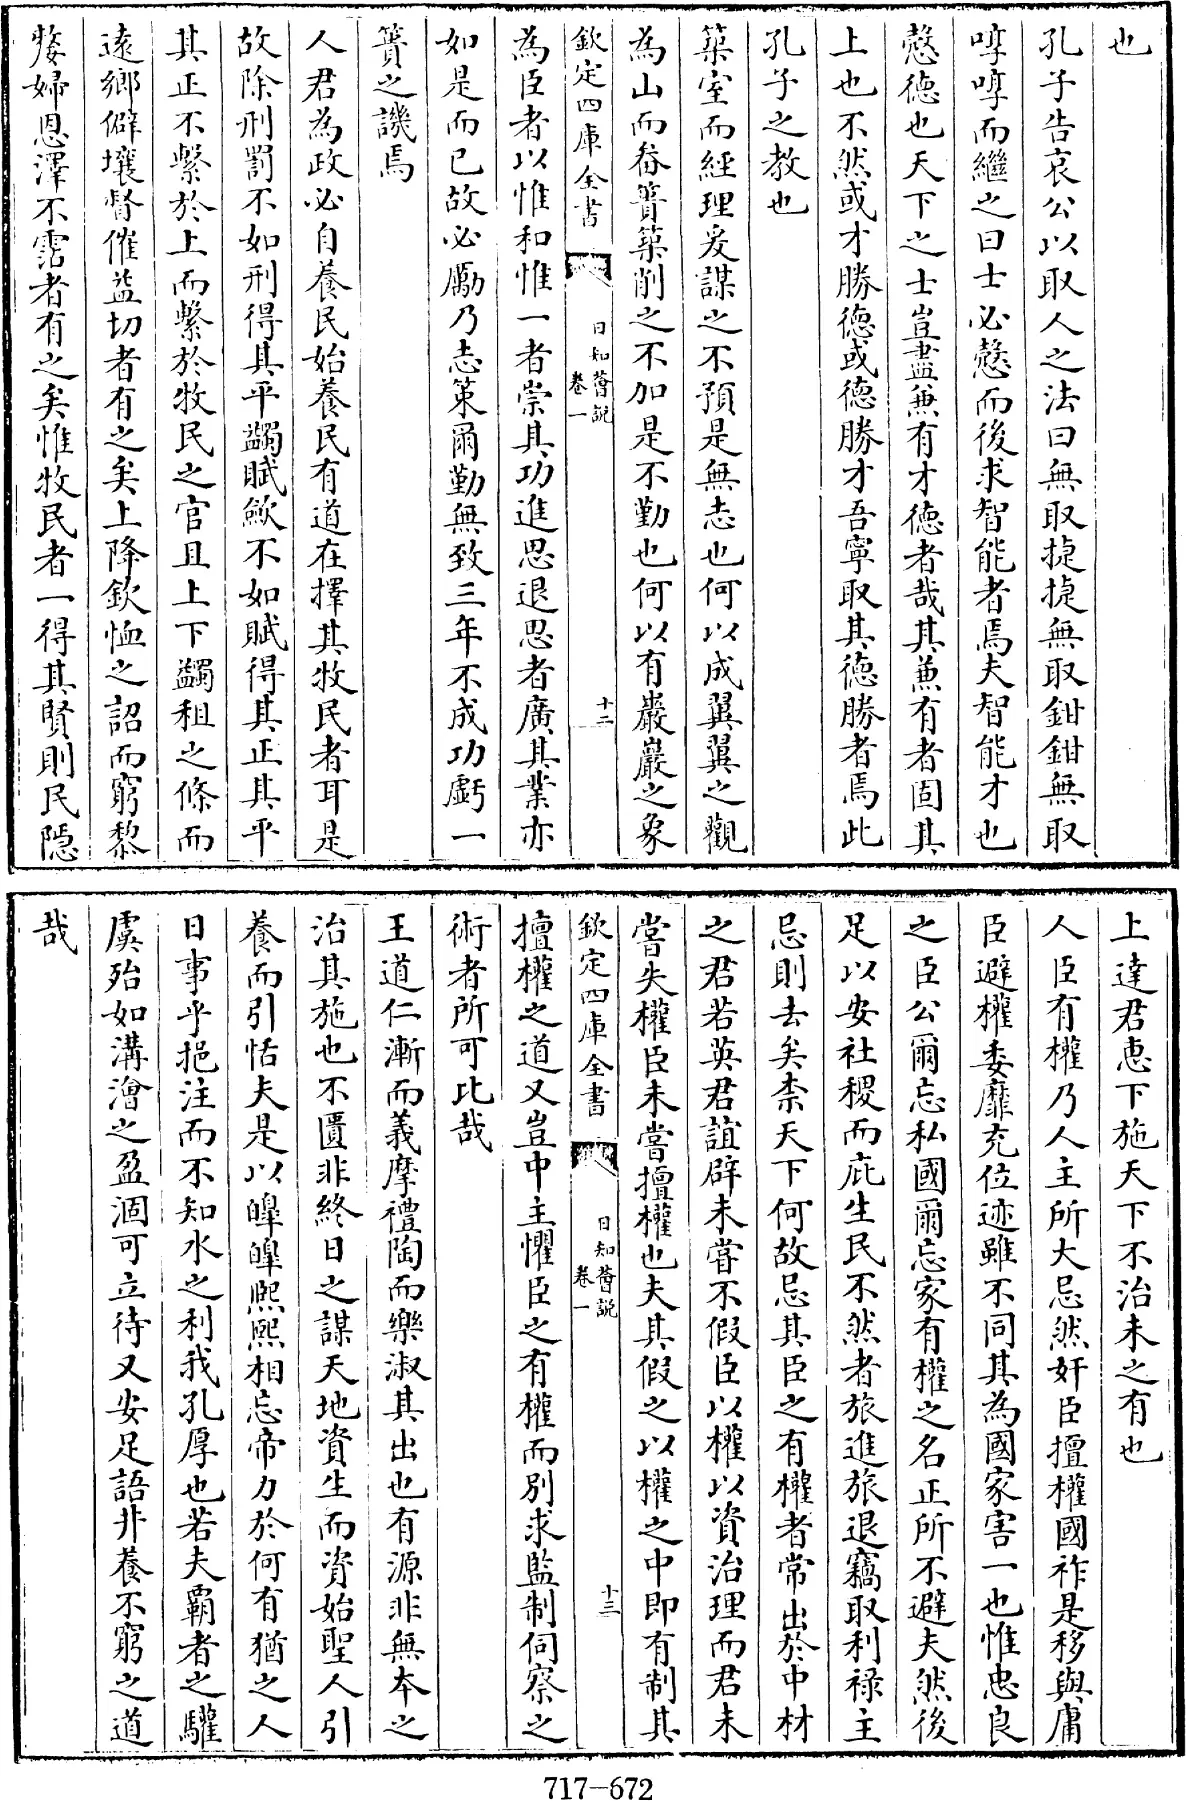 也
孔子告哀公以取人之法曰無取捷捷無取鉗鉗無取
啍啍而繼之曰士必慤而後求智能者焉夫智能才也
慤德也天下之士豈盡兼有才德者哉其兼有者固其
上也不然或才勝德或德勝才吾寧取其德勝者焉此
孔子之教也
築室而經理爰謀之不預是無志也何以成翼翼之觀
為山而畚簣築削之不加是不勤也何以有巖巖之象
欽定四庫全書
日知薈說
卷一
十二
為臣者以惟和惟一者崇其功進思退思者廣其業亦
如是而已故必勵乃志策爾勤無致三年不成功虧一
簣之譏焉
人君為政必自養民始養民有道在擇其牧民者耳是
故除刑罰不如刑得其平蠲賦歛不如賦得其正其平
其正不繫於上而繫於牧民之官且上下蠲租之條而
遠鄉僻壤督催益切者有之矣上降欽恤之詔而窮黎
嫠婦恩澤不霑者有之矣惟牧民者一得其賢則民隱
上達君恵下施天下不治未之有也
人臣有權乃人主所大忌然奸臣擅權國祚是移與庸
臣避權委靡充位迹雖不同其為國家害一也惟忠良
之臣公爾忘私國爾忘家有權之名正所不避夫然後
足以安社稷而庇生民不然者旅進旅退竊取利祿主
忌則去矣柰天下何故忌其臣之有權者常出於中材
之君若英君誼辟未嘗不假臣以權以資治理而君未
嘗失權臣未嘗擅權也夫其假之以權之中即有制其
欽定四庫全書
日知薈說
卷一
十三
擅權之道又豈中主懼臣之有權而別求監制伺察之
術者所可比哉
王道仁漸而義摩禮陶而樂淑其出也有源非無本之
治其施也不匱非終日之謀天地資生而資始聖人引
養而引恬夫是以皥皥熙熙相忘帝力於何有猶之人
日事乎挹注而不知水之利我孔厚也若夫覇者之驩
虞殆如溝澮之盈涸可立待又安足語井養不窮之道
哉
717-672